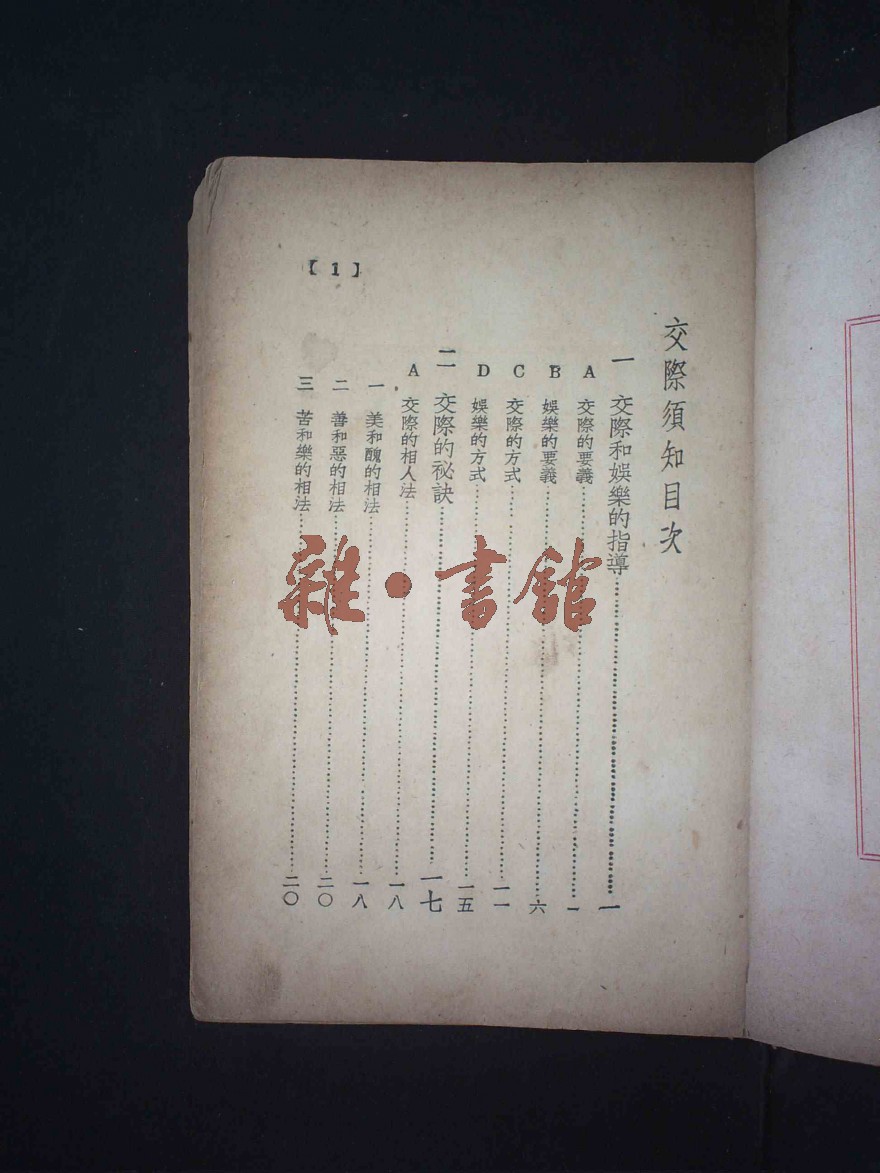 交際須知目次
一 交際和娛樂的指導……一
A 交際的要義……一
B 娛樂的要義……六
C 交際的方式……一一
D 娛樂的方式……一五
二 交際的祕訣……一七
A 交際的相人法……一八
一 美和醜的相法……一八
二 善和惡的相法……二〇
三 苦和樂的相法……二〇
【1】
雜·書館